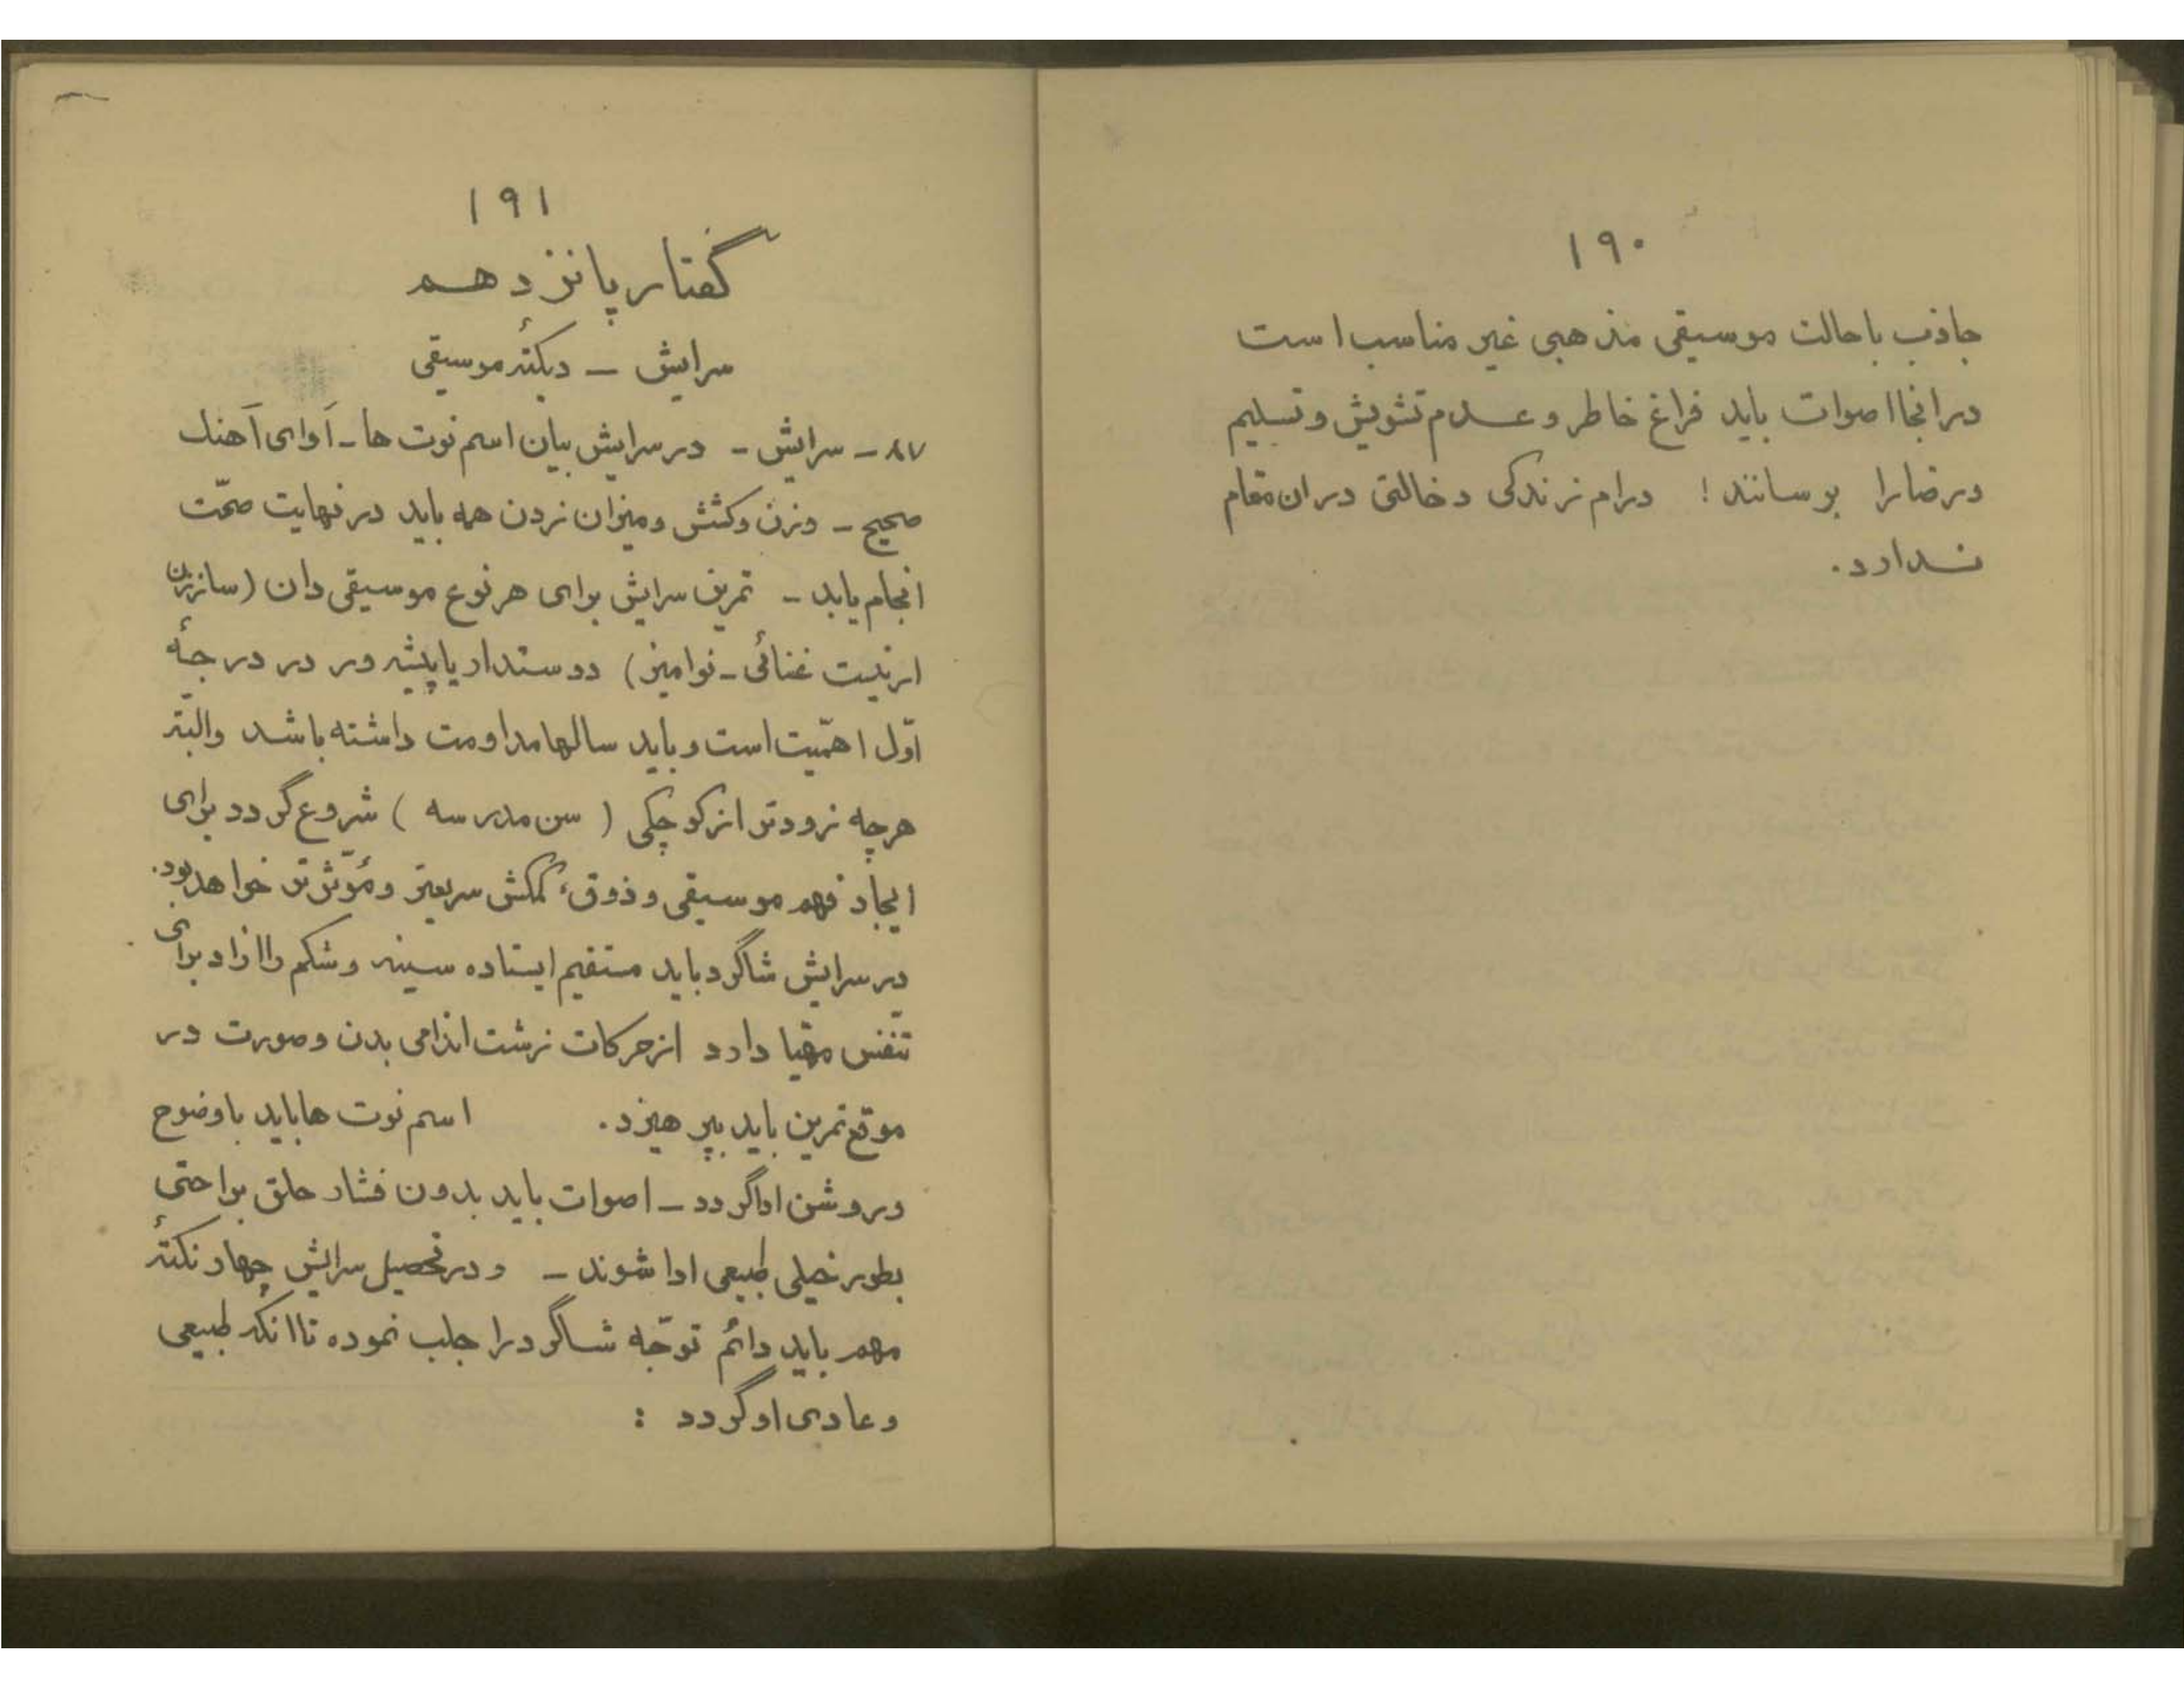 ۱۹۰
جاذب با حالت موسیقی مذهبی غیر مناسب است
در انجا اصوات باید فراغ خاطر و عدم تشویش و تسلیم
و رضا را برسانند ! درام زندگی دخالتی در ان مقام
ندارد.
۱۹۱
گفتار پانزدهم
سرایش – دیکتهٔ موسیقی
۸۷ – سرایش – در سرایش بیان اسم نوت ها – آوای آهنک
صحیح – وزن و کشش و میزان زدن همه باید در نهایت صحّت
انجام یابد – تمرین سرایش برای هر نوع موسیقی دان (ساززن
ارتیست غنائی – نوامیز) دوستدار یا پیشه ور در درجهٔ
اوّل اهمّیت است و باید سالها مداومت داشته باشد والبتّه
هرچه زودتر از کوچکی ( سن مدرسه ) شروع گردد برای
ایجاد فهم موسیقی و ذوق، کمکش سریعتر و مؤثّرتر خواهد بود.
در سرایش شاگرد باید مستقیم ایستاده سینه و شکم را ازاد برای
تنفّس مهّیا دارد از حرکات زشت اندامی بدن و صورت در
موقع تمرین باید بپرهیزد. اسم نوت ها باید با وضوح
و روشن ادا گردد – اصوات باید بدون فشار حلق براحتی
بطور خیلی طبیعی ادا شوند – و در تحصیل سرایش چهار نکتهٔ
مهم باید دائم توجّه شاگرد را جلب نموده تا انکه طبیعی
و عادی او گردد :